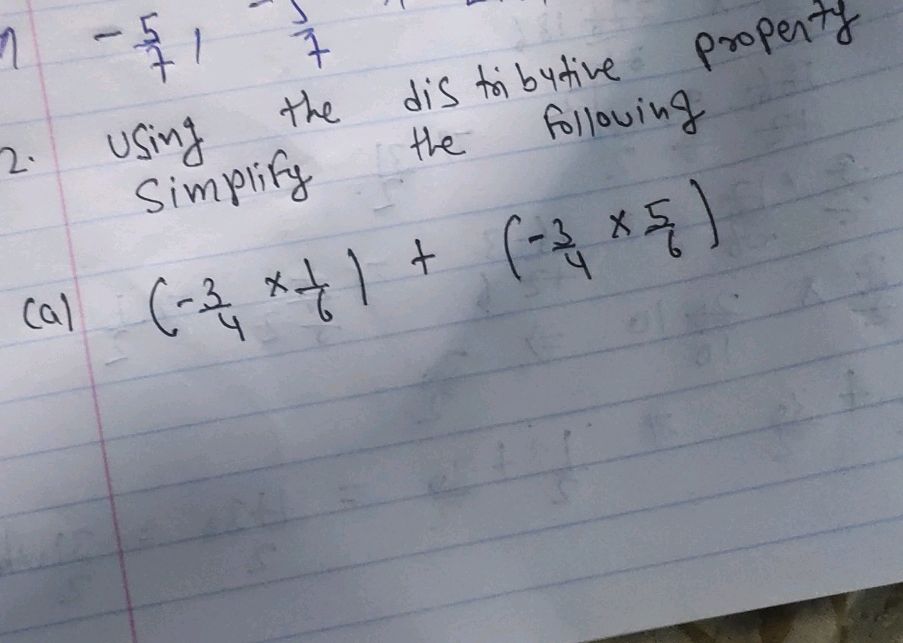 - 5/7, - /7
2. Using the distributive property
Simplify the following
(a) (-3/4 × 1/6) + (-3/4 × 5/6)